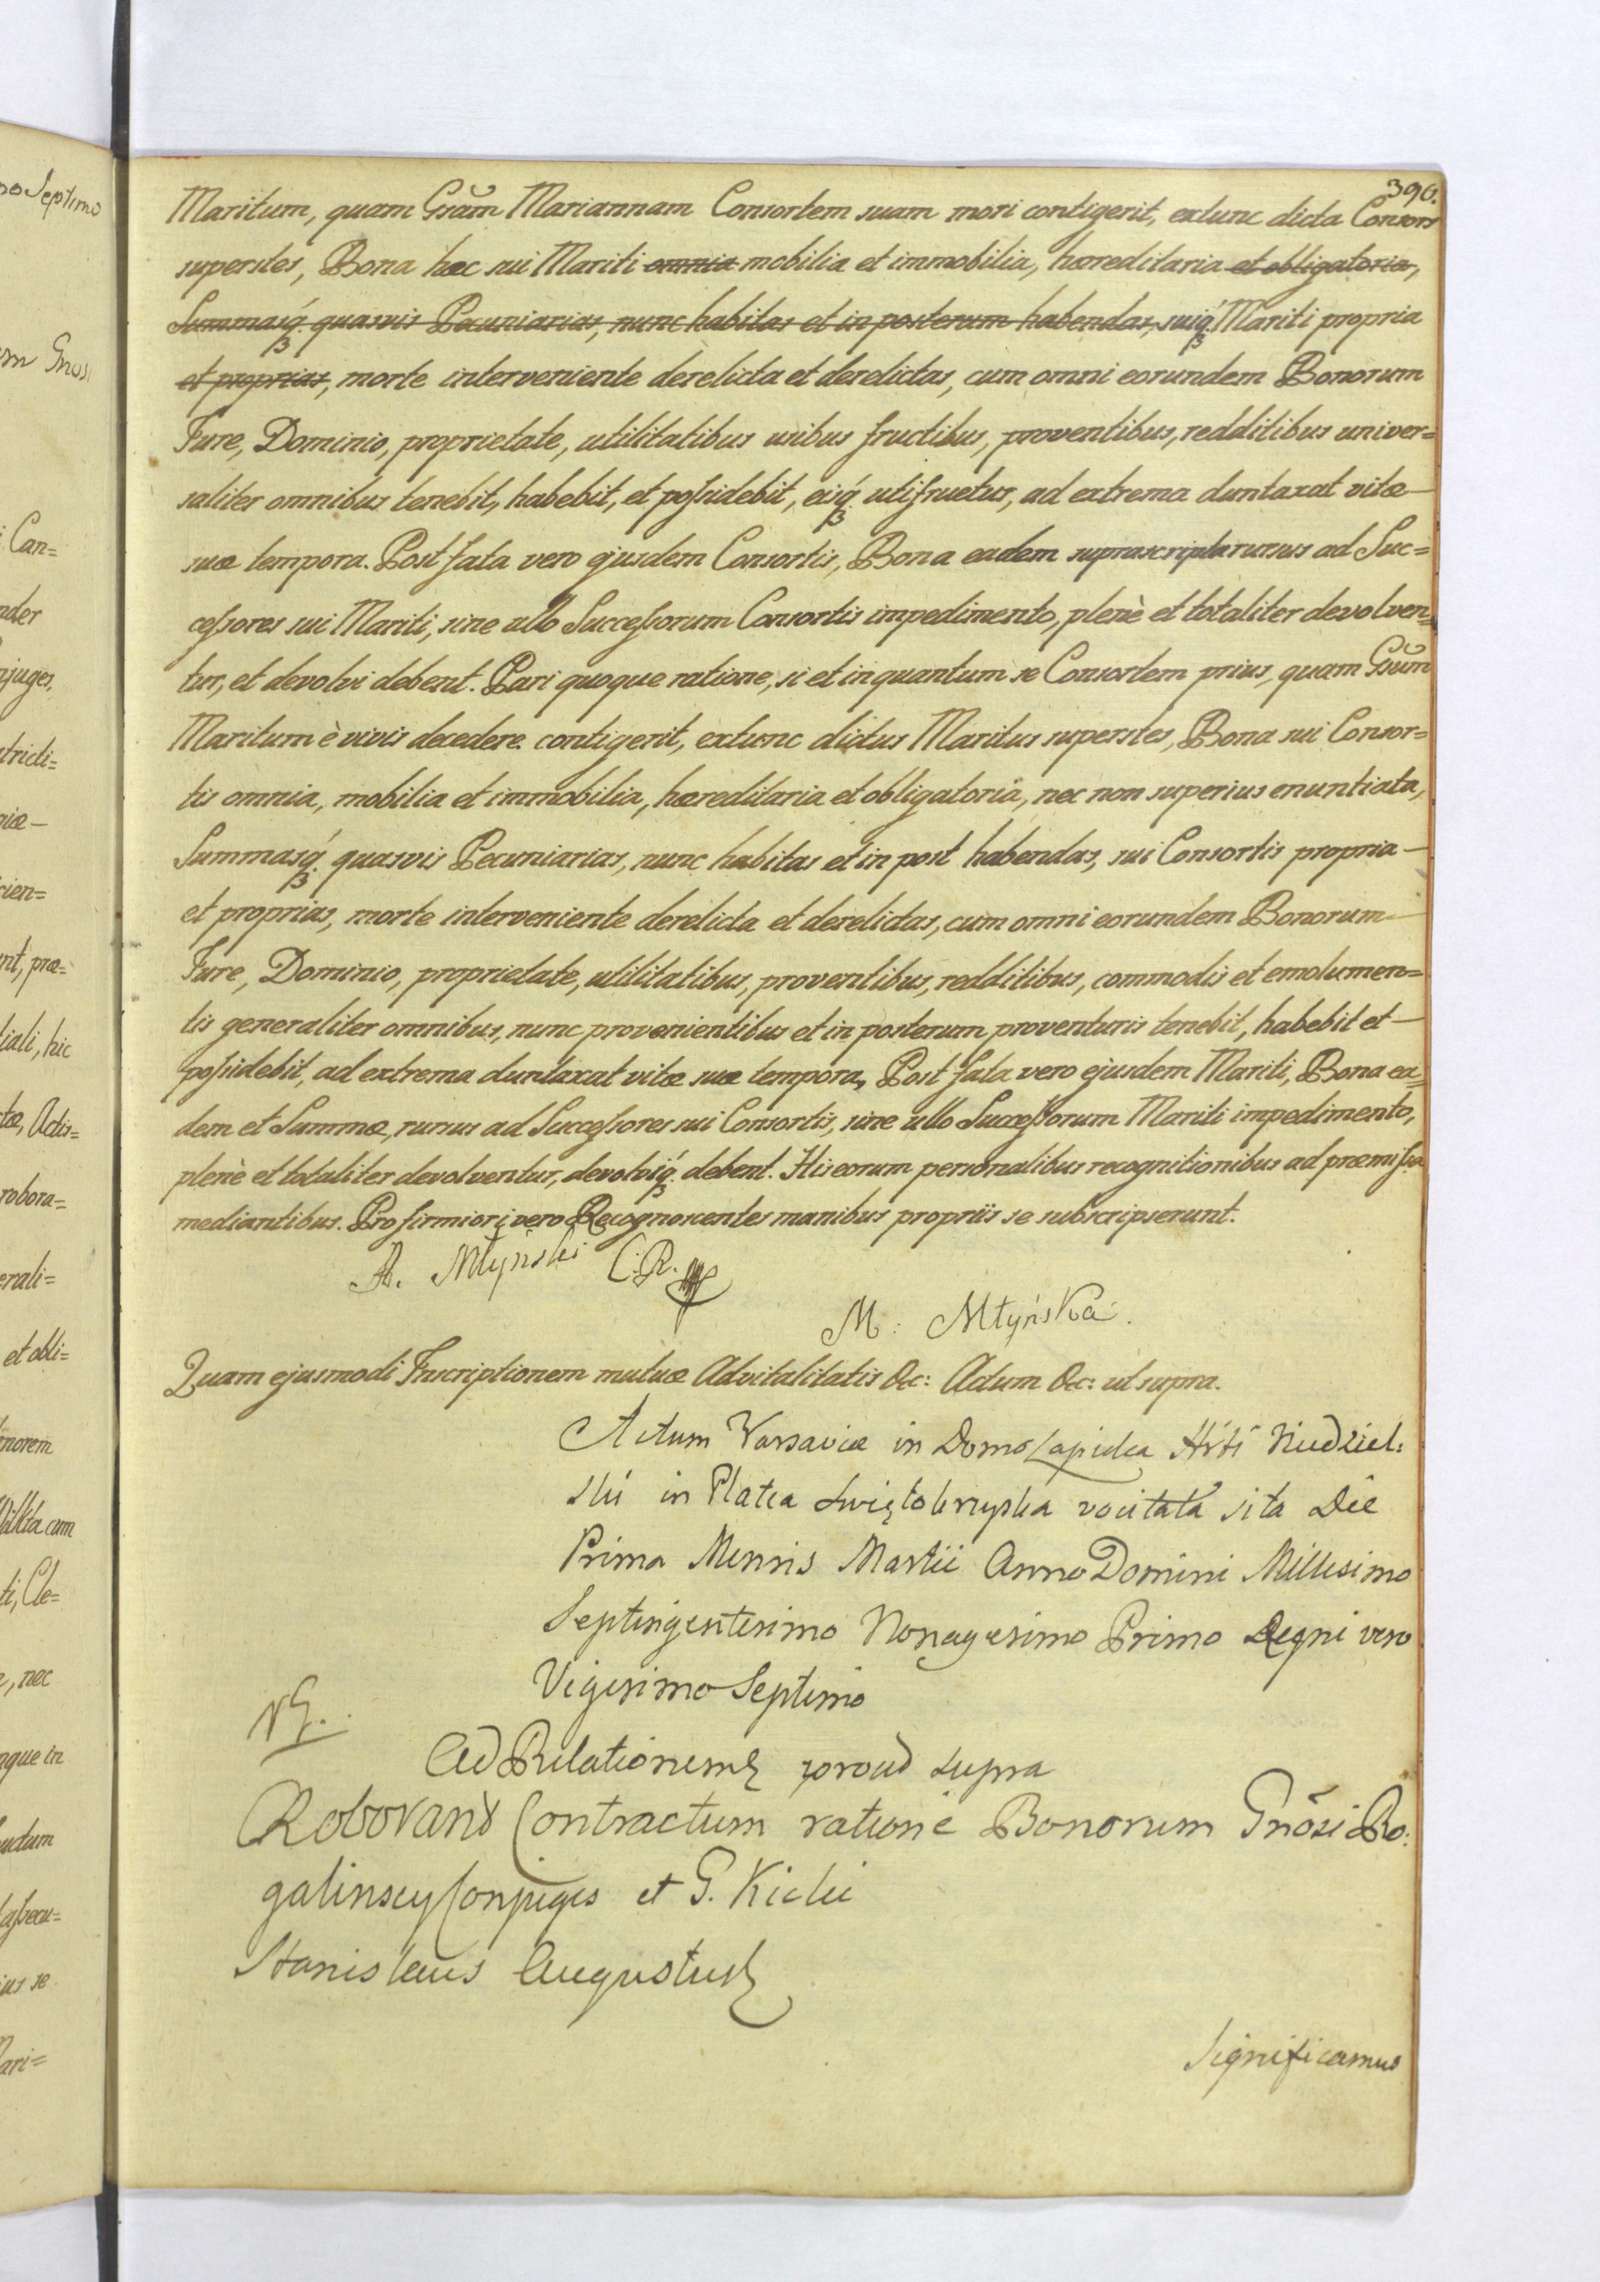 390.
Maritum, quam Grām Mariannam Consortem suam mori contigerit, extunc dicta Consors
superstes, Bona hæc sui Mariti omnia mobilia et immobilia, hæreditaria et obligatoria,
Summasq́ quasvis Pecuniarias, nunc habitas et in posterum habendas, suiq́ Mariti propria
et proprias, morte interveniente derelicta et derelictas, cum omni eorundem Bonorum
Jure, Dominio, proprietate, utilitatibus usibus fructibus, proventibus, redditibus univer=
saliter omnibus tenebit, habebit, et poſsidebit, eisq́ utifruetur, ad extrema duntaxat vitæ—
suæ tempora. Post fata vero ejusdem Consortis, Bona eadem suprascripta rursus ad Suc=
ceſsores sui Mariti, sine ullo Succeſsorum Consortis impedimento, plenè et totaliter devolven=
tur, et devolvi debent. Pari quoque ratione, si et inquantum se Consortem prius, quam Gsūm
Maritum è vivis decedere contigerit, extunc dictus Maritus superstes, Bona sui Consor=
tis omnia, mobilia et immobilia, hæreditaria et obligatoria, nec non superius enuntiata,
Summasq́ quasvis Pecuniarias, nunc habitas et in post habendas, sui Consortis propria—
et proprias, morte interveniente derelicta et derelictas, cum omni eorundem Bonorum—
Jure, Dominio, proprietate, utilitatibus, proventibus, redditibus, commodis et emolumen=
tis generaliter omnibus, nunc provenientibus et in posterum proventuris tenebit, habebit et—
poſsidebit, ad extrema duntaxat vitæ suæ tempora, Post fata vero ejusdem Mariti, Bona ea=
dem et Summæ, rursus ad Succeſsores sui Consortis, sine ullo Succeſsorum Mariti impedimento,
plenè et totaliter devolventur, devolviq́ debent. His eorum personalibus recognitionibus ad præmiſsa
mediantibus. Pro firmiori vero Recognoscentes manibus propriis se subscripserunt.
A. Młyński C:R.
M: Młyńska.
Quam ejusmodi Inscriptionem mutuæ Advitalitatis &c: Actum &c: ut supra.
Actum Varsaviæ in Domo Lapidea Niedziel:
ski in Platea Swiętokrzyska vocitata sita Die
Prima Mensis Martii Anno Domini Millesimo
Septingentesimo Nonagesimo Primo Regni vero
Vigesimo Septimo
Ad Relationem prout supra
Roborans Contractum ratione Bonorum Gnōsi Ro:
galinscy Conjuges et G. Kicki
Stanislaus Augustus
Significamus